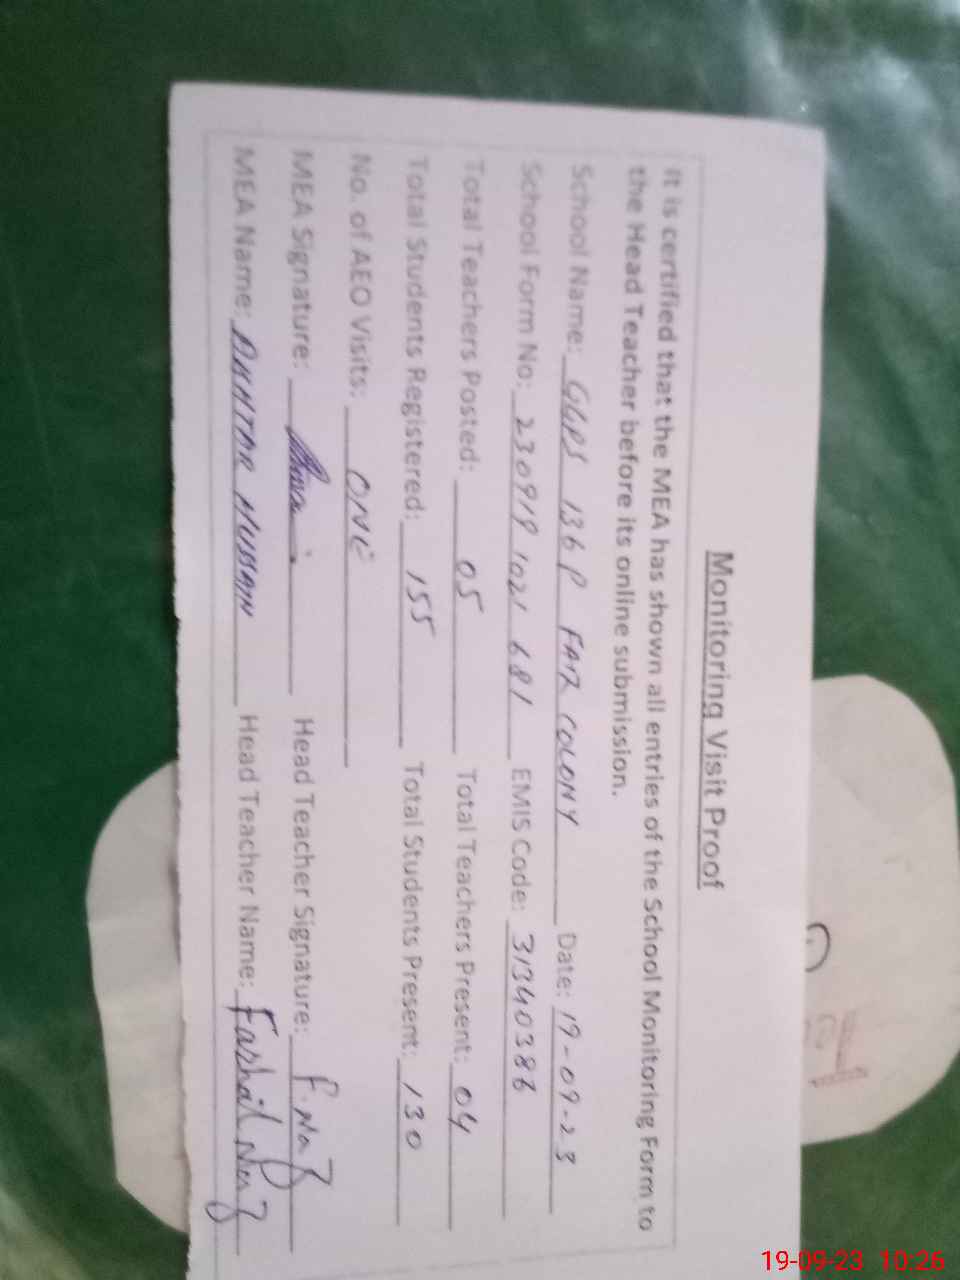 Monitoring Visit Proof
It is certified that the MEA has shown all entries of the School Monitoring Form to
the Head Teacher before its online submission.
School Name: GGPS 136 P FAR COLONY Date: 19-09-23
School Form No: 230919 1021 681 EMIS Code: 31340386
Total Teachers Posted: 05 Total Teachers Present: 04
Total Students Registered: 155 Total Students Present: 130
No. of AEO Visits: ONE
MEA Signature: Head Teacher Signature: F. Naz
MEA Name: AKHTAR HUSSAIN Head Teacher Name: Naz
19-09-23 10:26